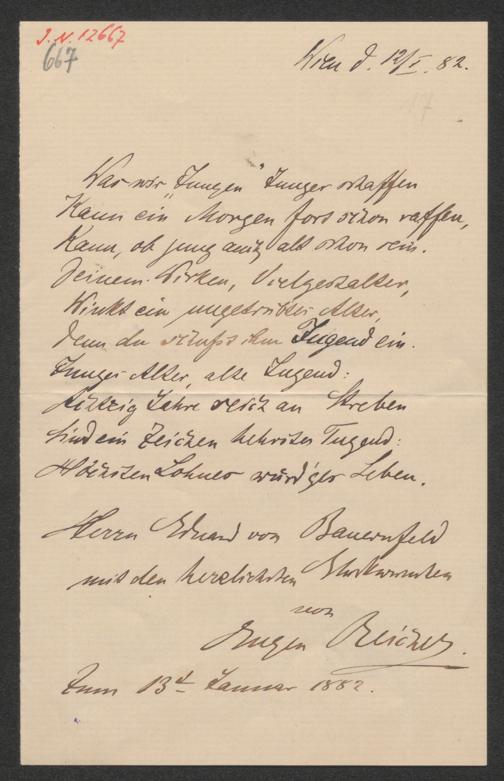 I. N. 12667
667
Wien d. 12/I. 82.
Was wir „Jungen“ Junges schaffen
Kann ein Morgen fort schon raffen,
Kann, ob jung auch, alt schon sein.
Deinem Wirken, Vielgestalter,
Winkt ein ungetrübtes Alter,
Denn du schufst ihm Jugend ein.
Junges Alter, alte Jugend:
Achtzig Jahre reich an Streben
Sind ein Zeichen hehrster Tugend:
Höchsten Lohnes würd'ges Leben.
Herrn Eduard von Bauernfeld
mit den herzlichsten Glückwünschen
von
Eugen
Zum 13t Januar 1882.